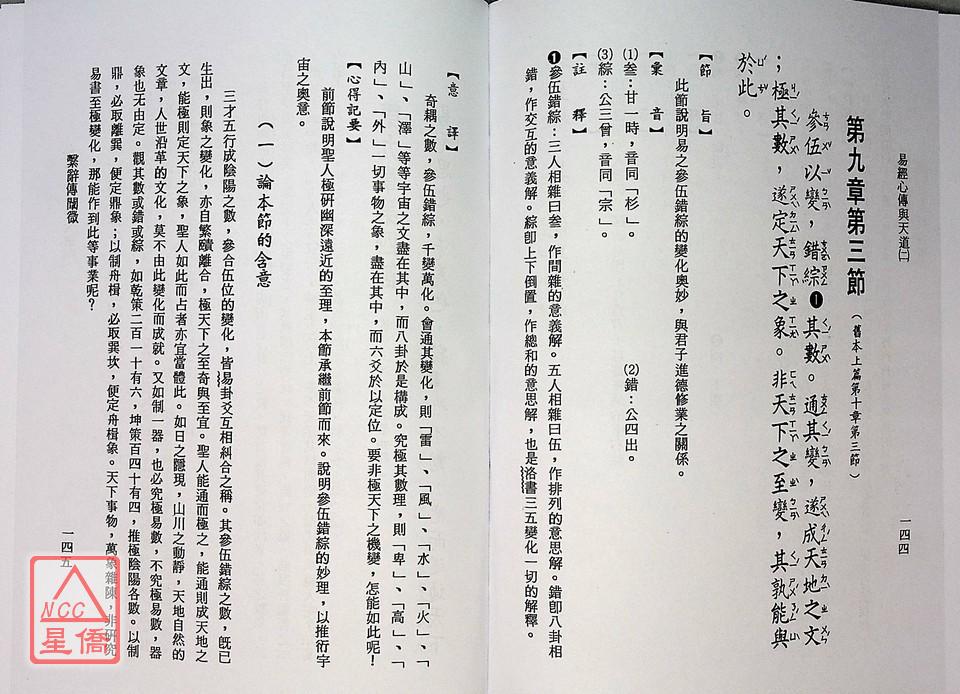 易經心傳與天道㈡
一四四
第九章第三節（舊本上篇第十章第三節）
參伍以變，錯綜❶其數。通其變，遂成天地之文
；極其數，遂定天下之象。非天下之至變，其孰能與
於此。
【節　旨】
此節說明易之參伍錯綜的變化奧妙，與君子進德修業之關係。
【彙　音】
⑴叁：甘一時，音同「杉」。　⑵錯：公四出。
⑶綜：公三曾，音同「宗」。
【註　釋】
❶參伍錯綜：三人相雜曰叁，作間雜的意義解。五人相雜曰伍，作排列的意思解。錯卽八卦相
錯，作交互的意義解。綜卽上下倒置，作總和的意思解，也是洛書三五變化一切的解釋。
【意　譯】
奇耦之數，參伍錯綜，千變萬化。會通其變化，則「雷」、「風」、「水」、「火」、「
山」、「澤」等等宇宙之文盡在其中，而八卦於是構成。究極其數理，則「卑」、「高」、「
內」、「外」一切事物之象，盡在其中，而六爻於以定位。要非極天下之機變，怎能如此呢！
【心得記要】
前節說明聖人極研幽深遠近的至理，本節承繼前節而來。說明參伍錯綜的妙理，以推衍宇
宙之奧意。
（一）論本節的含意
三才五行成陰陽之數，參合伍位的變化，皆易卦爻互相糾合之稱。其參伍錯綜之數，旣已
生出，則象之變化，亦自繁賾離合，極天下之至奇與至宜。聖人能通而極之，能通則成天地之
文，能極則定天下之象，聖人如此而占者亦宜當體此。如日之隱現，山川之動靜，天地自然的
文章，人世沿革的文化，莫不由此變化而成就。又如制一器，也必究極易數，不究極易數，器
象也无由定。觀其數或錯或綜，如乾策二百一十有六，坤策百四十有四，推極陰陽各數。以制
鼎，必取離巽，便定鼎象；以制舟楫，必取巽坎，便定舟楫象。天下事物，萬象雜陳，非研究
易書至極變化，那能作到此等事業呢？
繫辭傳闡微
一四五
NCC
星僑